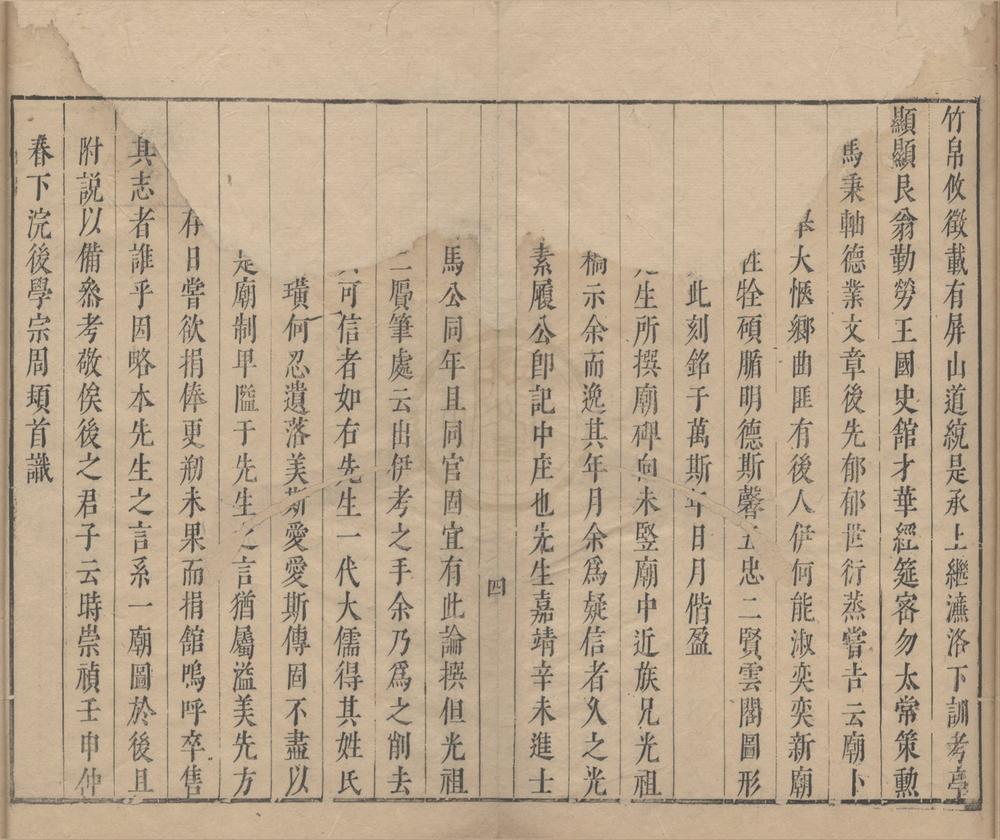 竹帛攸徵載有屏山道統是承上繼濂洛下訓考亭
顯顯艮翁勤勞王國史舘才華經筵密勿太常策勲
馬秉軸德業文章後先郁郁世衍蒸嘗吉云廟卜
大愜鄉曲匪有後人伊何能淑奕奕新廟
牲牷碩腯明德斯馨五忠二賢雲閣圖形
此刻銘于萬斯年日月偕盈
先生所撰廟碑向未竪廟中近族兄光祖
示余而逸其年月余爲疑信者久之光
素履公卽記中庄也先生嘉靖辛未進士
四
馬公同年且同官固宜有此論撰但光祖
贋筆處云出伊考之手余乃爲之削去
可信者如右先生一代大儒得其姓氏
璜何忍遺落美斯愛愛斯傳固不盡以
是廟制甲隘于先生之言猶屬溢美先方
存日嘗欲捐俸更剏未果而捐館嗚呼卒售
其志者誰乎因略本先生之言系一廟圖於後且
附説以備叅考敬俟後之君子云時崇禎壬申仲
春下浣後學宗周頓首識